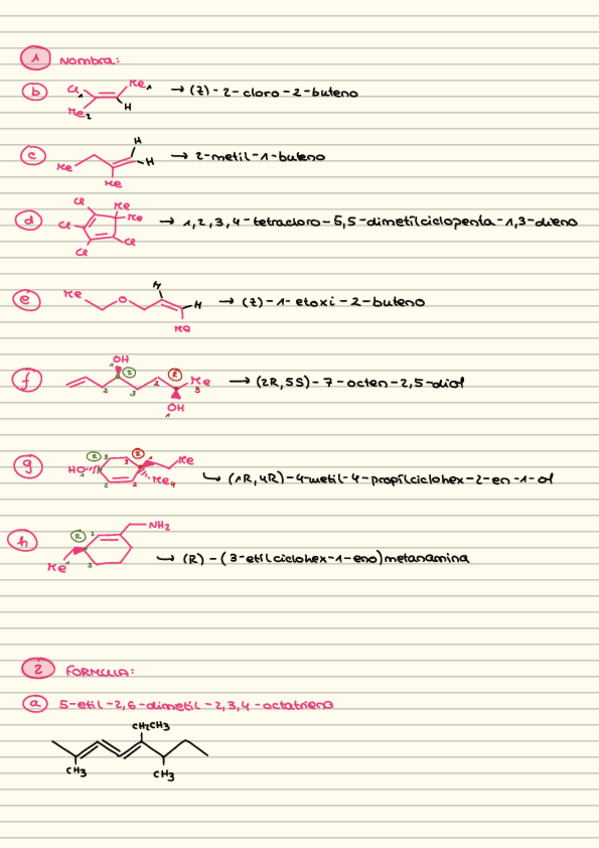 1 Nombra:
b Cl 1 Me 1 Me 2 H → (Z)-2-cloro-2-buteno
c Me H H Me → 2-metil-1-buteno
d Cl Me Me Cl Cl Cl → 1,2,3,4-tetracloro-5,5-dimetilciclopenta-1,3-dieno
e Me O H H Me → (Z)-1-etoxi-2-buteno
f OH 1 S 2 3 2 R Me 3 OH 1 → (2R,5S)-7-octen-2,5-diol
g HO 1 R 3 2 3 R 1 2 Me Me 4 ↪ (1R,4R)-4-metil-4-propilciclohex-2-en-1-ol
h NH2 R 2 Me 1 3 ↪ (R)-(3-etilciclohex-1-eno)metanamina
2 FORMULA:
a 5-etil-2,6-dimetil-2,3,4-octatrieno
CH2CH3
CH3 CH3